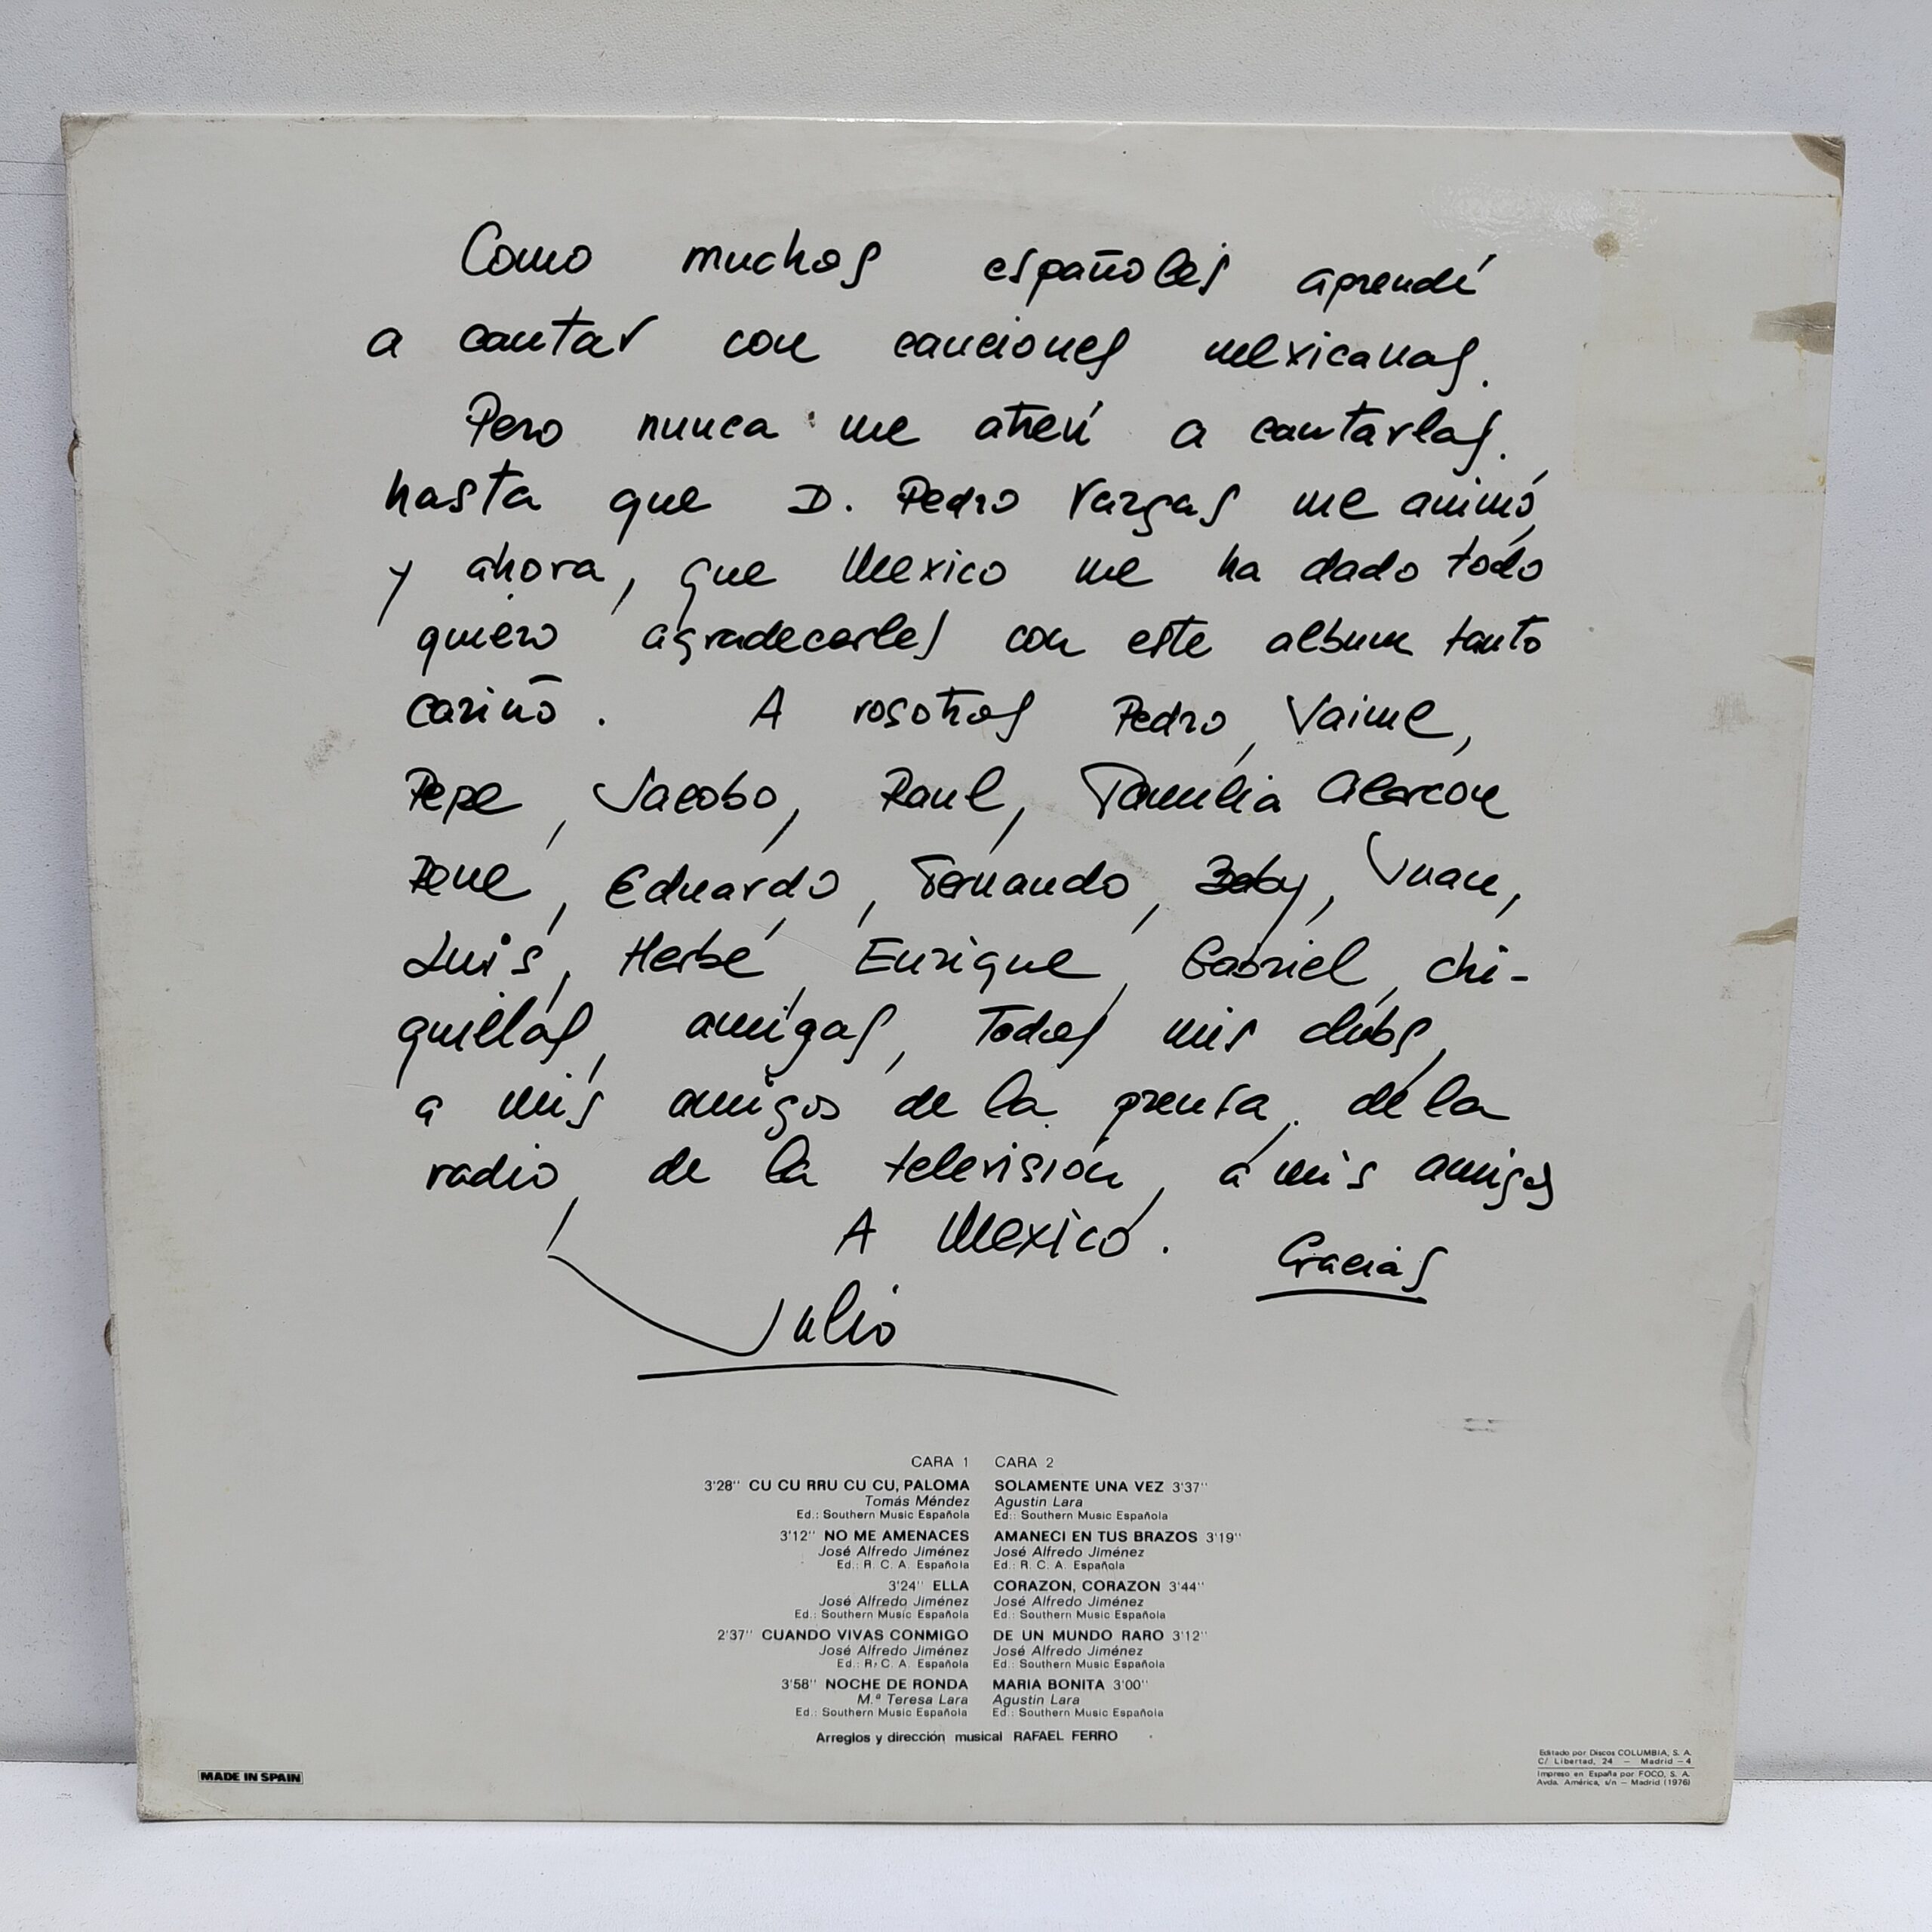 Como muchos españoles aprendí
a cantar con canciones mexicanas.
Pero nunca me atreví a cantarlas.
hasta que D. Pedro Vargas me animó,
y ahora, que Mexico me ha dado todo
quiero agradecerles con este album tanto
cariño. A vosotros Pedro, Jaime,
Pepe, Jacobo, Raul, Familia Alarcon
Rene, Eduardo, Fernando, Baby, Juan,
Luis, Herbé, Enrique, Gabriel, chi-
quillas, amigas, Todos mis clubs,
a mis amigos de la prensa, de la
radio, de la televisión, a mis amigos
A Mexico. Gracias
Julio
CARA 1
3'28'' CU CU RRU CU CU, PALOMA
Tomás Méndez
Ed.: Southern Music Española
3'12'' NO ME AMENACES
José Alfredo Jiménez
Ed.: R. C. A. Española
3'24'' ELLA
José Alfredo Jiménez
Ed.: Southern Music Española
2'37'' CUANDO VIVAS CONMIGO
José Alfredo Jiménez
Ed.: R. C. A. Española
3'58'' NOCHE DE RONDA
M.ª Teresa Lara
Ed.: Southern Music Española
CARA 2
SOLAMENTE UNA VEZ 3'37''
Agustin Lara
Ed.: Southern Music Española
AMANECI EN TUS BRAZOS 3'19''
José Alfredo Jiménez
Ed.: R. C. A. Española
CORAZON, CORAZON 3'44''
José Alfredo Jiménez
Ed.: Southern Music Española
DE UN MUNDO RARO 3'12''
José Alfredo Jiménez
Ed.: Southern Music Española
MARIA BONITA 3'00''
Agustin Lara
Ed.: Southern Music Española
Arreglos y dirección musical RAFAEL FERRO
MADE IN SPAIN
Editado por Discos COLUMBIA, S. A.
C/ Libertad, 24 — Madrid - 4
Impreso en España por FOCO, S. A.
Avda. América, s/n — Madrid (1976)